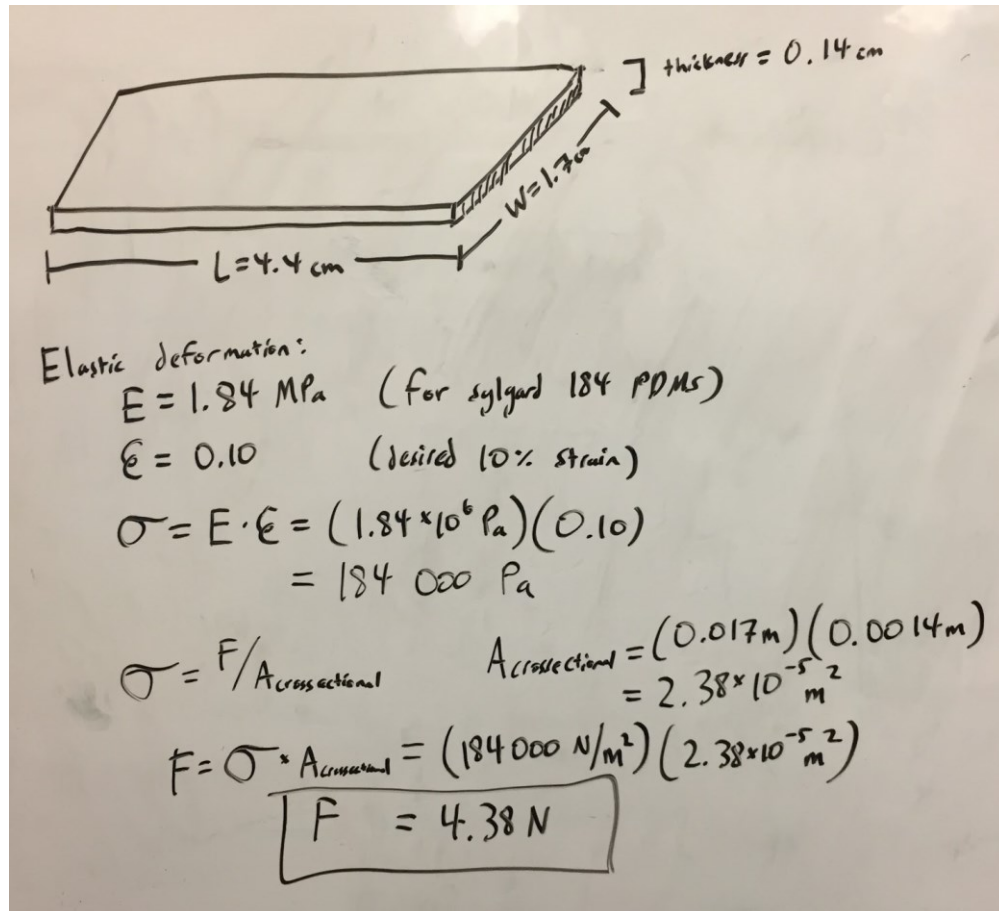 thickness = 0.14 cm
W=1.7cm
L=4.4 cm
Elastic deformation:
E = 1.84 MPa (for sylgard 184 PDMS)
ϵ = 0.10 (desired 10% strain)
σ = E·ϵ = (1.84×10⁶ Pa)(0.10)
= 184 000 Pa
σ = F/A crossectional A crossectional = (0.017m)(0.0014m)
= 2.38×10⁻⁵ m²
F = σ × A crossectional = (184000 N/m²)(2.38×10⁻⁵ m²)
F = 4.38 N